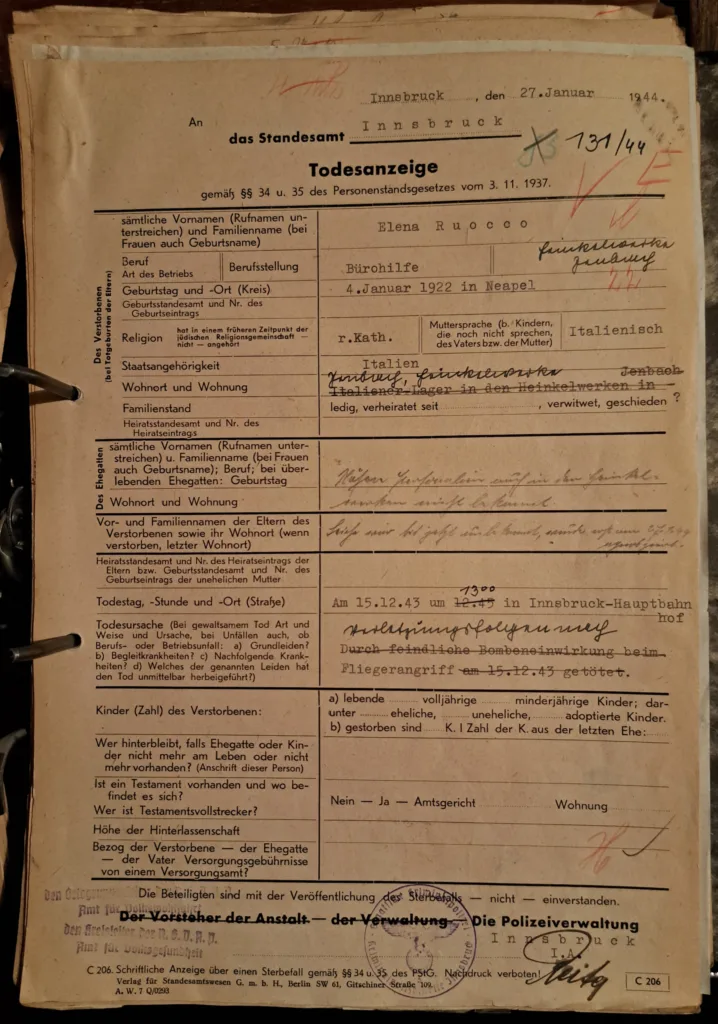 Innsbruck, den 27.Januar 1944.
An
das Standesamt Innsbruck
131/44
Todesanzeige
gemäß §§ 34 u. 35 des Personenstandsgesetzes vom 3. 11. 1937.
Des Verstorbenen
(bei Totgeburten der Eltern)
sämtliche Vornamen (Rufnamen un-
terstreichen) und Familienname (bei
Frauen auch Geburtsname)
Elena Ruocco
Beruf
Art des Betriebs
Berufsstellung
Bürohilfe
Heinkelwerke
Jenbach
Geburtstag und -Ort (Kreis)
4.Januar 1922 in Neapel
Geburtsstandesamt und Nr. des
Geburtseintrags
Religion
hat in einem früheren Zeitpunkt der
jüdischen Religionsgemeinschaft —
nicht — angehört
r.Kath.
Muttersprache (b. Kindern,
die noch nicht sprechen,
des Vaters bzw. der Mutter)
Italienisch
Staatsangehörigkeit
Italien
Wohnort und Wohnung
Jenbach, Heinkelwerke
Jenbach
Italiener-Lager in den Heinkelwerken in
Familienstand
ledig, verheiratet seit , verwitwet, geschieden ?
Heiratsstandesamt und Nr. des
Heiratseintrags
Des Ehegatten
sämtliche Vornamen (Rufnamen unter-
streichen) u. Familienname (bei Frauen
auch Geburtsname); Beruf; bei über-
lebenden Ehegatten: Geburtstag
Nähere Personalien auch in den Heinkel-
werken nicht bekannt
Wohnort und Wohnung
Vor- und Familiennamen der Eltern des
Verstorbenen sowie ihr Wohnort (wenn
verstorben, letzter Wohnort)
Leiche war bis jetzt unbekannt, wurde erst am
Heiratsstandesamt und Nr. des Heiratseintrags der
Eltern bzw. Geburtsstandesamt und Nr. des
Geburtseintrags der unehelichen Mutter
Todestag, -Stunde und -Ort (Straße)
13⁰⁰
Am 15.12.43 um 12.45 in Innsbruck-Hauptbahn
hof
Todesursache (Bei gewaltsamem Tod Art und
Weise und Ursache, bei Unfällen auch, ob
Berufs- oder Betriebsunfall: a) Grundleiden?
b) Begleitkrankheiten? c) Nachfolgende Krank-
heiten? d) Welches der genannten Leiden hat
den Tod unmittelbar herbeigeführt?)
Verletzungsfolgen nach
Durch feindliche Bombeneinwirkung beim
Fliegerangriff am 15.12.43 getötet.
Kinder (Zahl) des Verstorbenen:
a) lebende volljährige minderjährige Kinder; dar-
unter eheliche, uneheliche, adoptierte Kinder.
b) gestorben sind K. | Zahl der K. aus der letzten Ehe:
Wer hinterbleibt, falls Ehegatte oder Kin-
der nicht mehr am Leben oder nicht
mehr vorhanden? (Anschrift dieser Person)
Ist ein Testament vorhanden und wo be-
findet es sich?
Wer ist Testamentsvollstrecker?
Nein — Ja — Amtsgericht Wohnung
Höhe der Hinterlassenschaft
Bezog der Verstorbene — der Ehegatte
— der Vater Versorgungsgebührnisse
von einem Versorgungsamt?
Die Beteiligten sind mit der Veröffentlichung des Sterbefalls — nicht — einverstanden.
Amt für Volkswohlfahrt
den Kreisleiter der N.S.D.A.P.
Amt für Volksgesundheit
Der Vorsteher der Anstalt — der Verwaltung — Die Polizeiverwaltung
Innsbruck
I.A.
C 206. Schriftliche Anzeige über einen Sterbefall gemäß §§ 34 u. 35 des PStG. Nachdruck verboten!
Verlag für Standesamtswesen G. m. b. H., Berlin SW 61, Gitschiner Straße 109.
A. W. 7
C 206